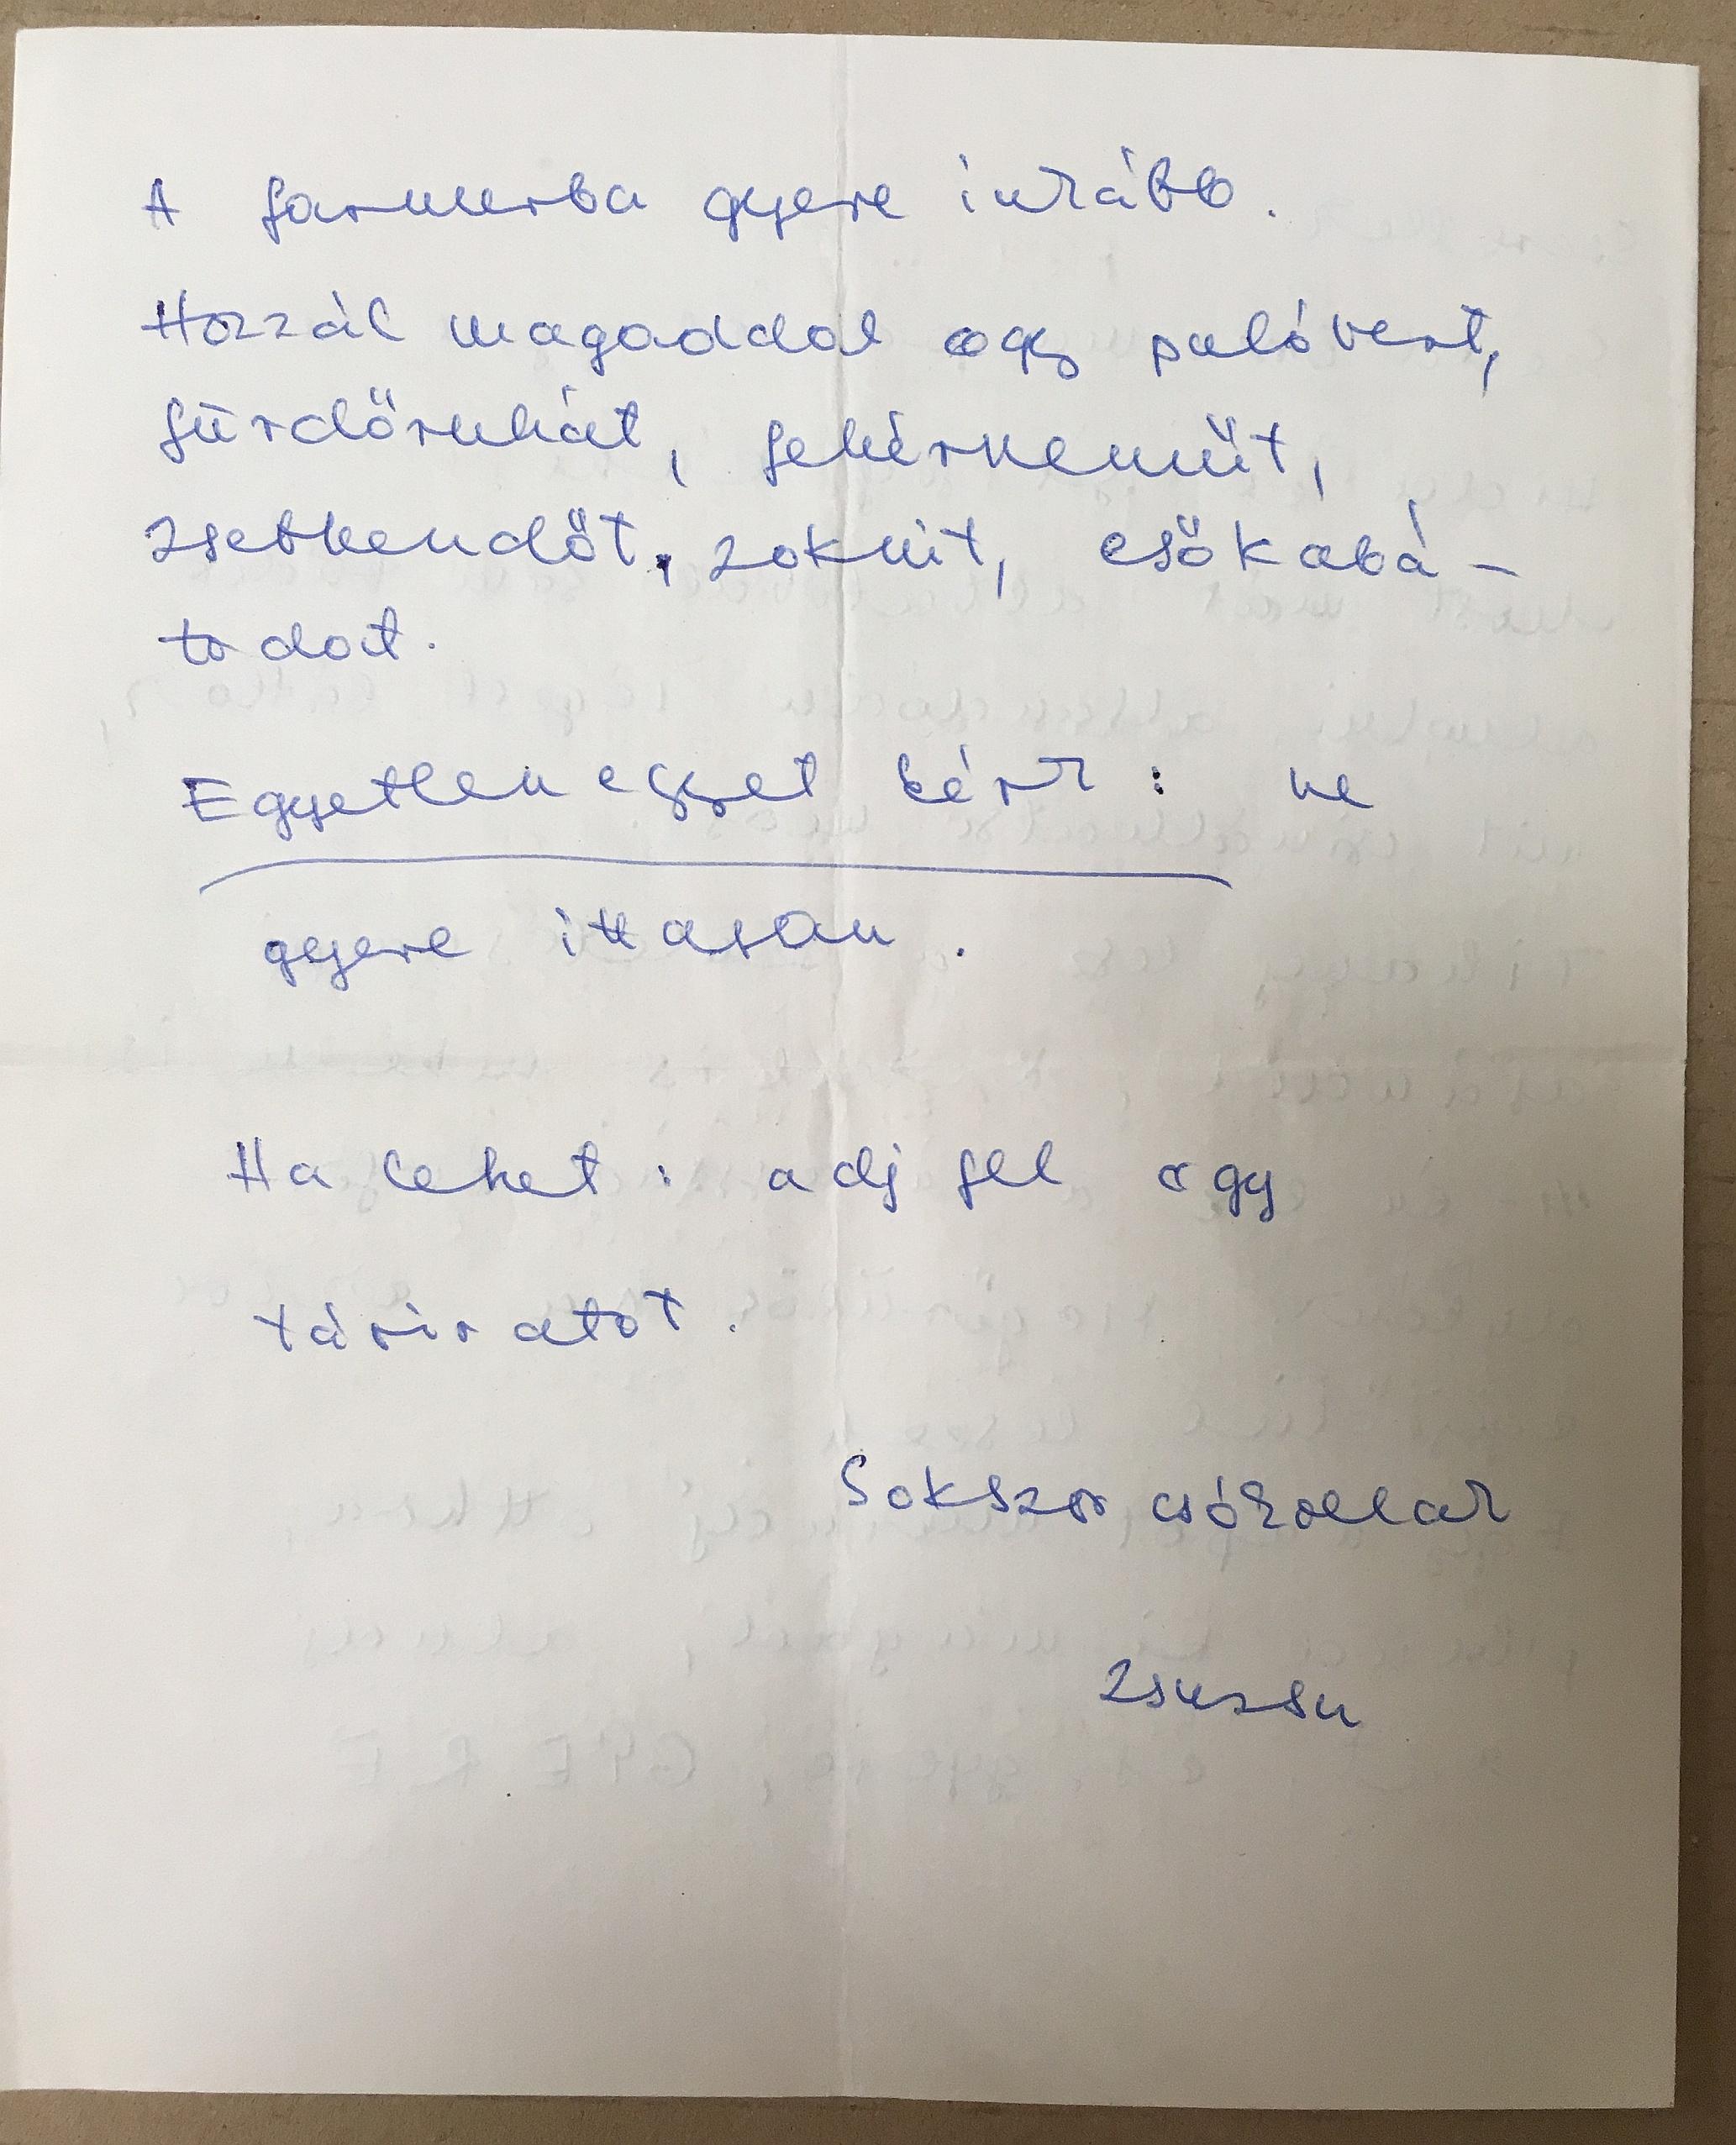 A farmerba gyere inkább.
Hozzál magaddal egy pulóvert,
fürdőruhát, fehérneműt,
zsebkendőt, zoknit, esőkabá-
todat.
Egyetlen egyet kérk : ne
gyere ittasan.
Ha lehet : adj fel egy
táviratot.
Sokszor csókollak
Zsuzsu